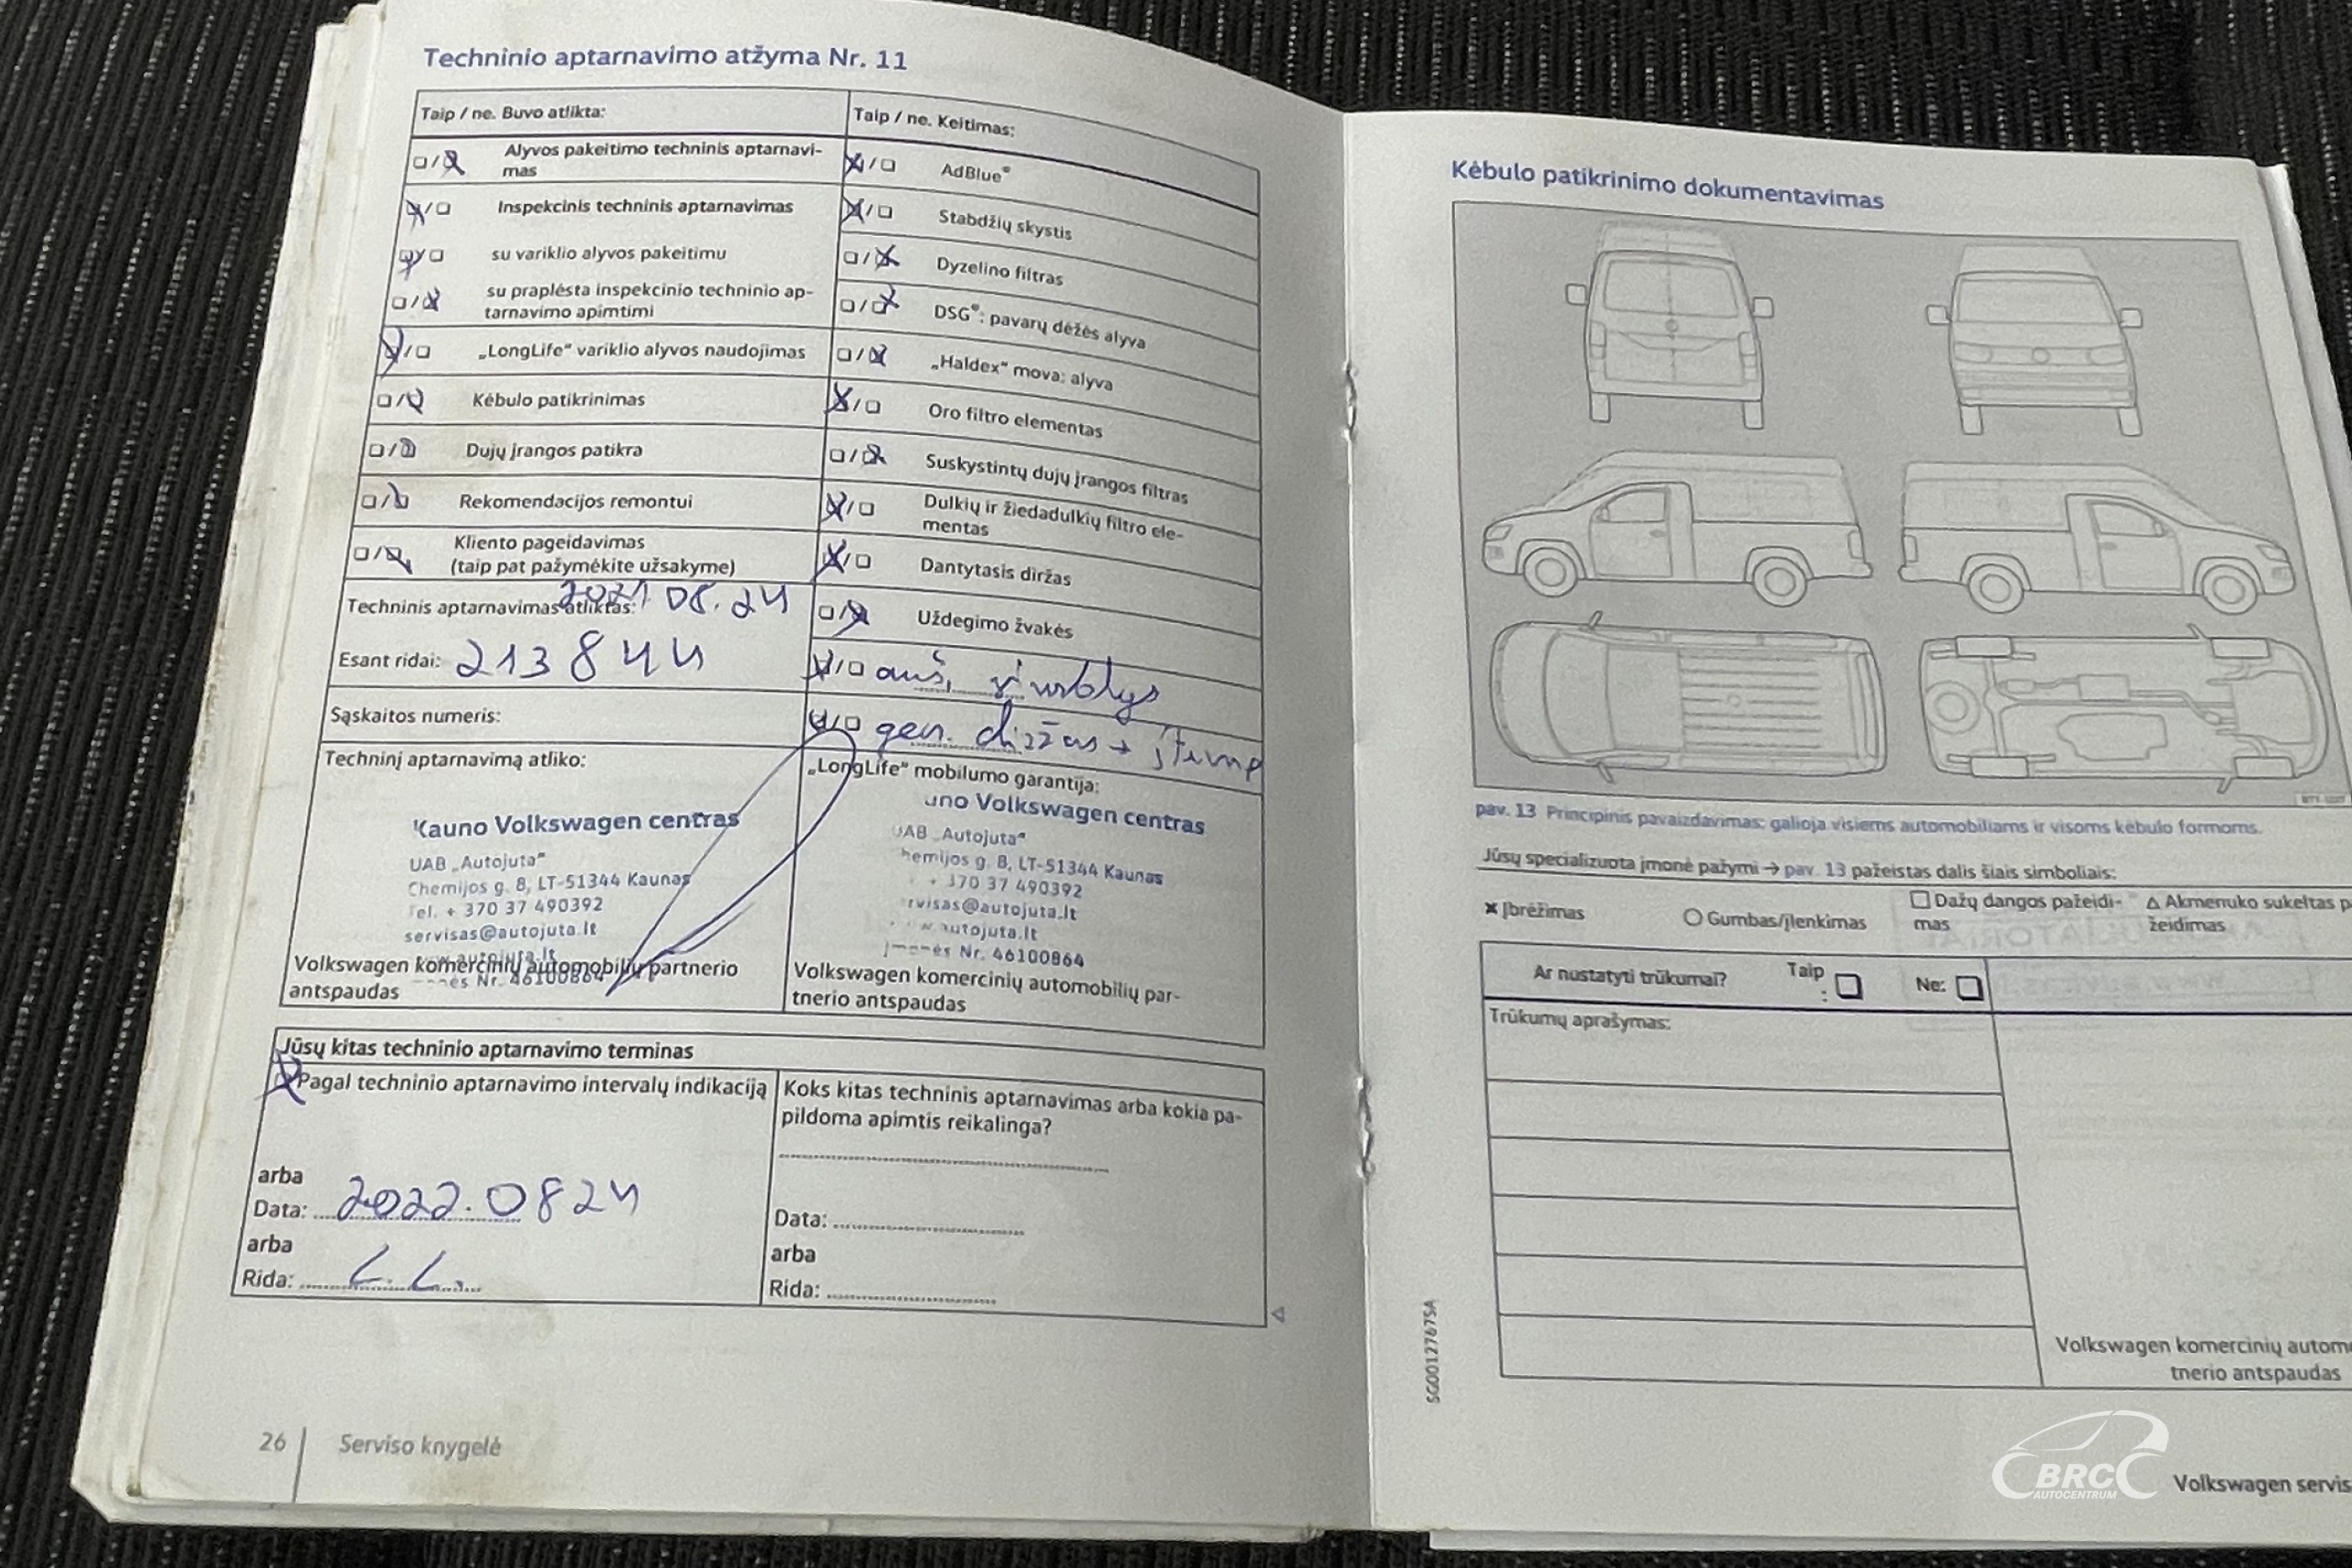 Techninio aptarnavimo atžyma Nr. 11
Taip / ne. Buvo atlikta:
Alyvos pakeitimo techninis aptarnavi-
mas
Inspekcinis techninis aptarnavimas
su variklio alyvos pakeitimu
su praplėsta inspekcinio techninio ap-
tarnavimo apimtimi
„LongLife“ variklio alyvos naudojimas
Kėbulo patikrinimas
Dujų įrangos patikra
Rekomendacijos remontui
Kliento pageidavimas
(taip pat pažymėkite užsakyme)
Techninis aptarnavimas atliktas: 2021.08.24
Esant ridai: 213844
Sąskaitos numeris:
Techninį aptarnavimą atliko:
Kauno Volkswagen centras
UAB „Autojuta“
Chemijos g. 8, LT-51344 Kaunas
Tel. + 370 37 490392
servisas@autojuta.lt
www.autojuta.lt
Nr. 46100864
Volkswagen komercinių automobilių partnerio
antspaudas
Taip / ne. Keitimas:
AdBlue®
Stabdžių skystis
Dyzelino filtras
DSG®: pavarų dėžės alyva
„Haldex“ mova: alyva
Oro filtro elementas
Suskystintų dujų įrangos filtras
Dulkių ir žiedadulkių filtro ele-
mentas
Dantytasis diržas
Uždegimo žvakės
auš. siurblys
gen. diržas + įtemp
„LongLife“ mobilumo garantija:
uno Volkswagen centras
UAB „Autojuta“
hemijos g. 8, LT-51344 Kaunas
+ 370 37 490392
rvisas@autojuta.lt
autojuta.lt
Įmonės Nr. 46100864
Volkswagen komercinių automobilių par-
tnerio antspaudas
Jūsų kitas techninio aptarnavimo terminas
Pagal techninio aptarnavimo intervalų indikaciją
arba
Data: 2022.0824
arba
Rida: L.L.
Koks kitas techninis aptarnavimas arba kokia pa-
pildoma apimtis reikalinga?
Data:
arba
Rida:
26 Serviso knygelė
Kėbulo patikrinimo dokumentavimas
pav. 13 Principinis pavaizdavimas: galioja visiems automobiliams ir visoms kėbulo formoms.
Jūsų specializuota įmonė pažymi → pav. 13 pažeistas dalis šiais simboliais:
Įbrėžimas
Gumbas/įlenkimas
Dažų dangos pažeidi-
mas
Akmenuko sukeltas p
žeidimas
Ar nustatyti trūkumai?
Taip
:
Ne:
Trūkumų aprašymas:
Volkswagen komercinių autom
tnerio antspaudas
SG0012767SA
Volkswagen servis
BRC
AUTOCENTRUM